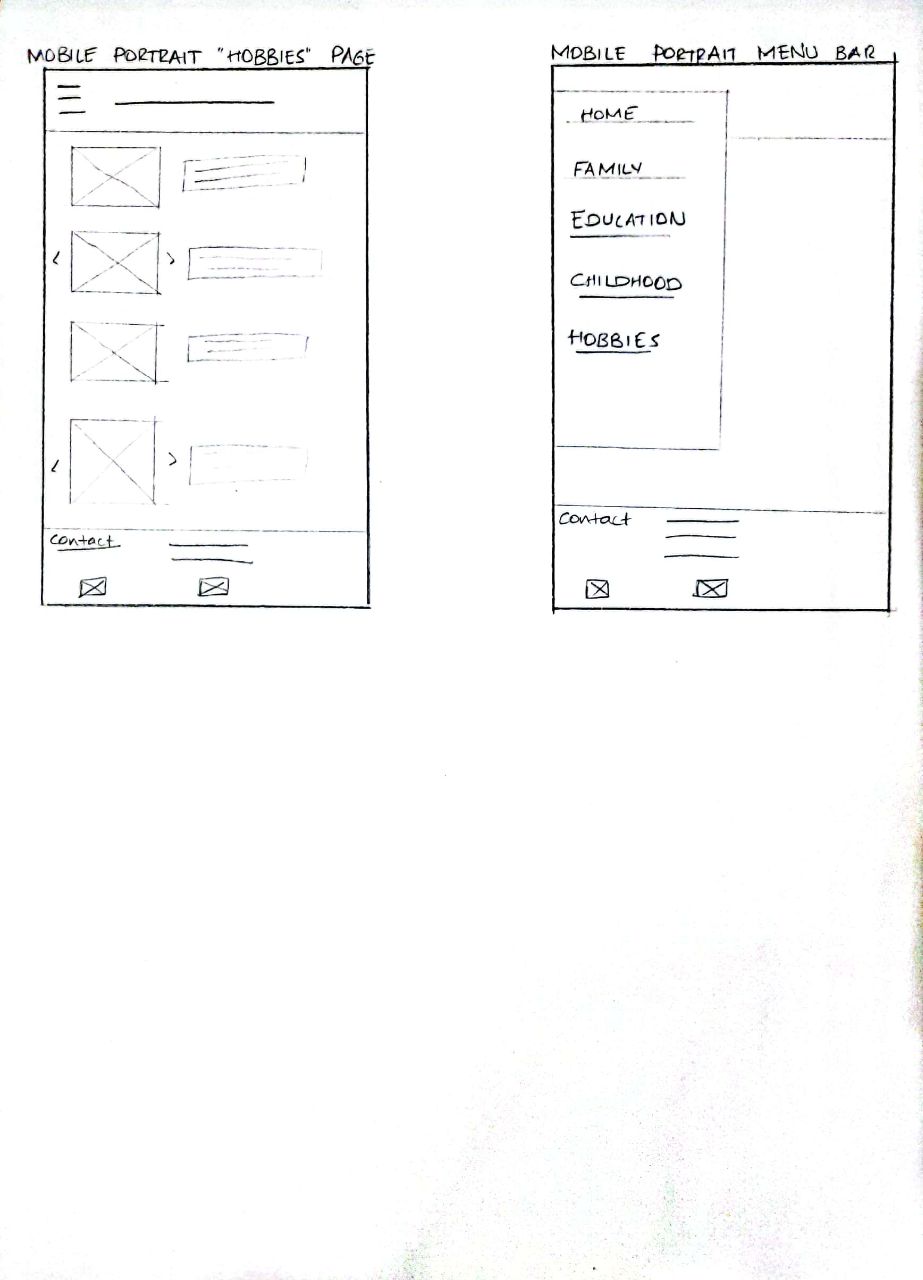 MOBILE PORTRAIT "HOBBIES" PAGE
contact
MOBILE PORTRAIT MENU BAR
HOME
FAMILY
EDUCATION
CHILDHOOD
HOBBIES
contact